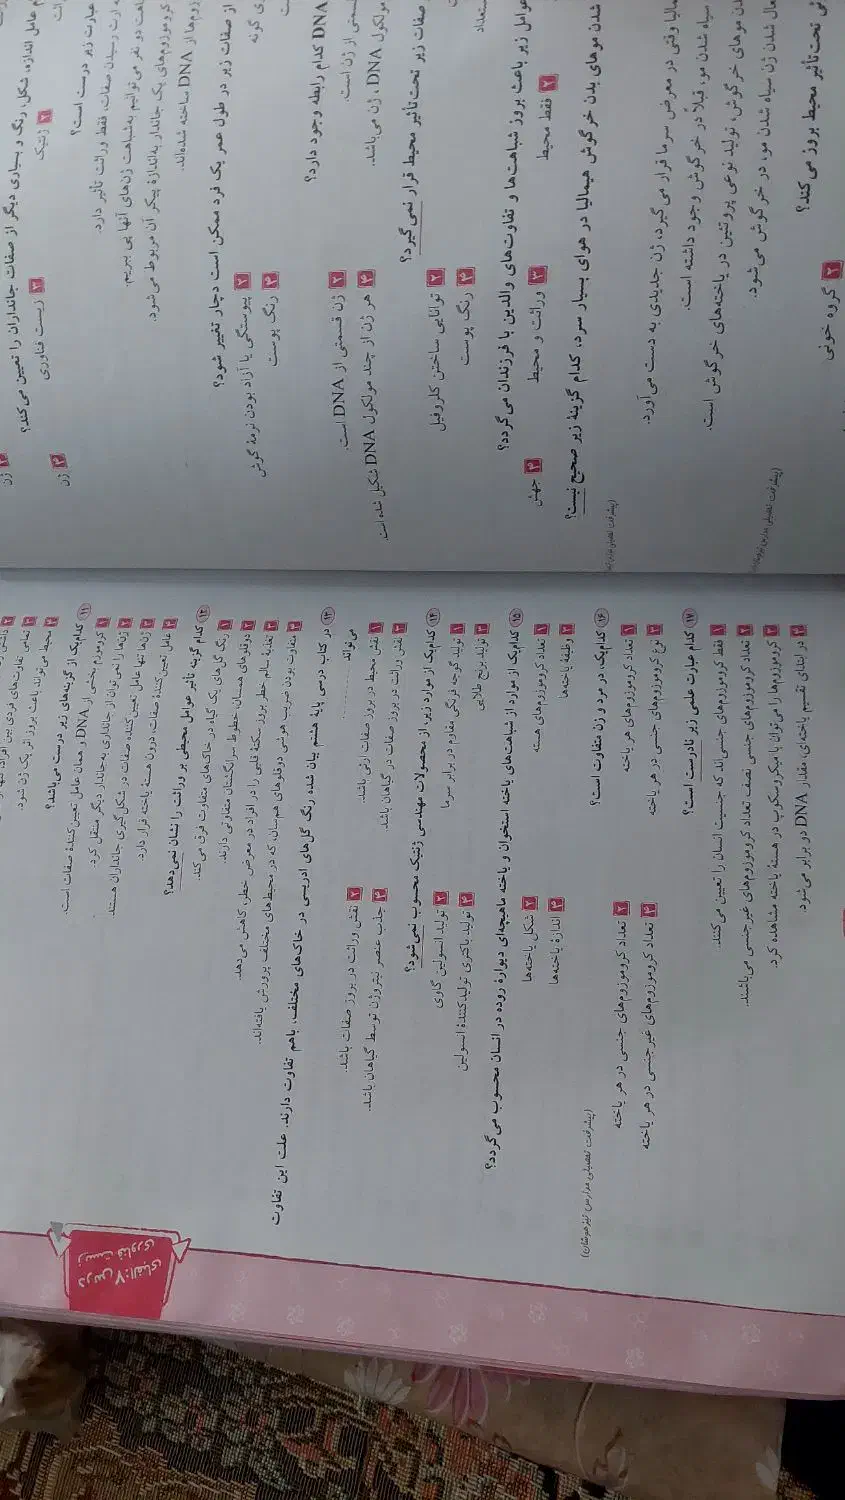 درس ۷: الفبای
زیست فناوری
محیط می‌تواند باعث بروز اثر یک ژن شود.
۱۱ کدام‌یک از گزینه‌های زیر درست می‌باشد؟
۱ کروموزوم بخشی از DNA و همان عامل تعیین‌کننده صفات است.
۲ ژن‌ها را نمی‌توان از جانداری به‌جاندار دیگر منتقل کرد.
۳ ژن‌ها تنها عامل تعیین‌کننده صفات در شکل‌گیری جانداران هستند.
۴ عامل تعیین‌کننده صفات، درون هستهٔ یاخته قرار دارد.
۱۲ کدام گزینه تأثیر عوامل محیطی بر وراثت را نشان نمی‌دهد؟
۱ رنگ گل‌های یک گیاه در خاک‌های متفاوت فرق می‌کند.
۲ دوقلوهای همسان، خطوط سرانگشتان متفاوتی دارند.
۳ تغذیه سالم خطر بروز سکتهٔ قلبی را در افراد در معرض خطر، کاهش می‌دهد.
۴ متفاوت بودن ضریب هوشی دوقلوهای همسان، که در محیط‌های مختلف پرورش یافته‌اند.
۱۳ در کتاب درسی پایهٔ هشتم بیان شده رنگ گل‌های ادریسی در خاک‌های مختلف، باهم تفاوت دارند. علت این تفاوت
می‌تواند ..........
۱ نقش محیط در بروز صفات ارثی باشد.
۲ نقش وراثت در بروز صفات باشد.
۳ نقش وراثت در بروز صفات در گیاهان باشد.
۴ جذب عنصر نیتروژن توسط گیاهان باشد.
۱۴ کدام‌یک از موارد زیر، از محصولات مهندسی ژنتیک محسوب نمی‌شود؟
۱ تولید گوجه فرنگی مقاوم در برابر سرما
۲ تولید انسولین گاوی
۳ تولید برنج طلایی
۴ تولید باکتری تولیدکنندهٔ انسولین
۱۵ کدام‌یک از موارد از شباهت‌های یاخته استخوان و یاخته ماهیچه‌ای دیوارهٔ روده در انسان محسوب می‌گردد؟
۱ تعداد کروموزوم‌های هسته
۲ شکل یاخته‌ها
۳ وظیفهٔ یاخته‌ها
۴ اندازهٔ یاخته‌ها
۱۶ کدام‌یک، در مرد و زن متفاوت است؟
(پیشرفت تحصیلی مدارس تیزهوشان)
۱ تعداد کروموزوم‌های هر یاخته
۲ تعداد کروموزوم‌های جنسی در هر یاخته
۳ نوع کروموزوم‌های جنسی در هر یاخته
۴ تعداد کروموزوم‌های غیرجنسی در هر یاخته
۱۷ کدام عبارت علمی زیر نادرست است؟
۱ فقط کروموزوم‌های جنسی‌اند که جنسیت انسان را تعیین می‌کنند.
۲ تعداد کروموزوم‌های جنسی نصف تعداد کروموزوم‌های غیرجنسی می‌باشند.
۳ کروموزوم‌ها را می‌توان با میکروسکوپ در هستهٔ یاخته مشاهده کرد.
۴ در ابتدای تقسیم یاخته‌ای، مقدار DNA دو برابر می‌شود.
عامل اندازه، شکل، رنگ و بسیاری دیگر از صفات جانداران را تعیین می‌کند؟
۲ ژنتیک
۳ زیست فناوری
۴ ژن
عبارت زیر درست است؟
رسیدن صفات، فقط وراثت تأثیر دارد.
دو نفر می‌توانیم به‌شباهت ژن‌های آنها پی ببریم.
کروموزوم‌های یک جاندار به‌اندازهٔ پیکر آن مربوط می‌شود.
DNA ساخته شده‌اند.
از صفات زیر در طول عمر یک فرد ممکن است دچار تغییر شود؟
۲ پیوستگی یا آزاد بودن نرمهٔ گوش
۴ رنگ پوست
DNA کدام رابطه وجود دارد؟
قسمتی از ژن است.
۲ ژن قسمتی از DNA است.
مولکول DNA، ژن می‌باشد.
۴ هر ژن از چند مولکول DNA تشکیل شده است.
صفات زیر تحت‌تأثیر محیط قرار نمی‌گیرد؟
۲ توانایی ساختن کلروفیل
۴ رنگ پوست
عوامل زیر باعث بروز شباهت‌ها و تفاوت‌های والدین با فرزندان می‌گردد؟
۲ فقط محیط
۳ وراثت و محیط
۴ جهش
شدن موهای بدن خرگوش هیمالیا در هوای بسیار سرد، کدام گزینهٔ زیر صحیح نیست؟
وقتی در معرض سرما قرار می‌گیرد، ژن جدیدی به دست می‌آورد.
سیاه شدن مو، قبلاً در خرگوش وجود داشته است.
موهای خرگوش، تولید نوعی پروتئین در یاخته‌های خرگوش است.
شدن ژن سیاه شدن مو، در خرگوش می‌شود.
تحت‌تأثیر محیط بروز می‌کند؟
۲ گروه خونی